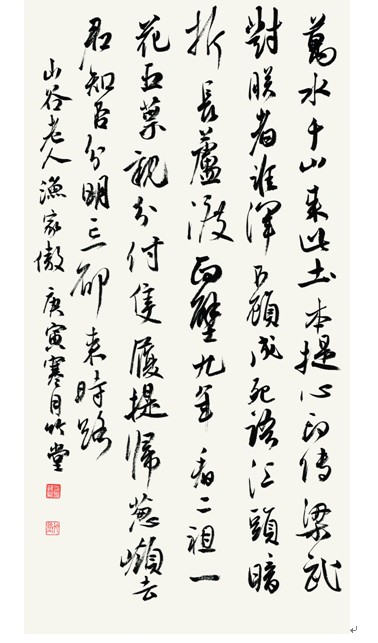 萬水千山來此土本提心印傳梁武
對朕者誰渾不顧成死語江頭暗
折長蘆渡面壁九年看二祖一
花五葉親分付隻履提歸葱嶺去
君知否分明忘卻來時路
山谷老人漁家傲 庚寅寒月竹堂